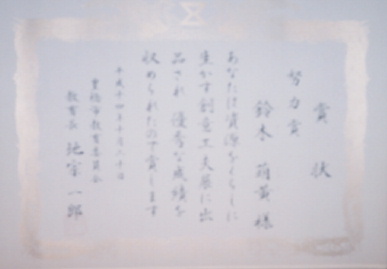 賞状
努力賞
鈴木 様
あなたは資源をくらしに
生かす創意工夫展に出
品され 優秀な成績を
収められたので賞します
平成十四年十月二十日
豊橋市教育委員会
教育長 一郎